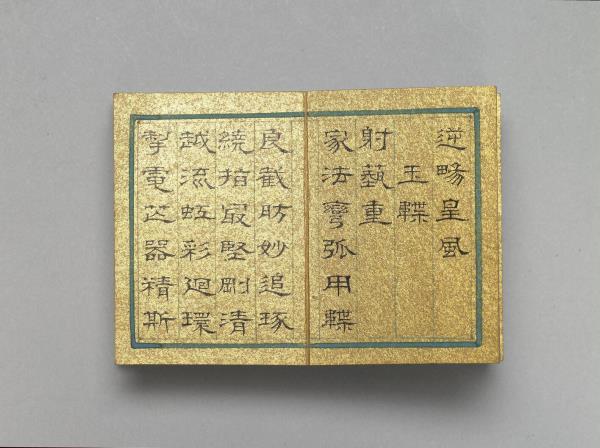 逆暢皇風
玉韘
射藝重
家法彎弧用韘
良截肪妙追琢
繞指最堅剛清
越流虹彩迴環
掣電芒器精斯